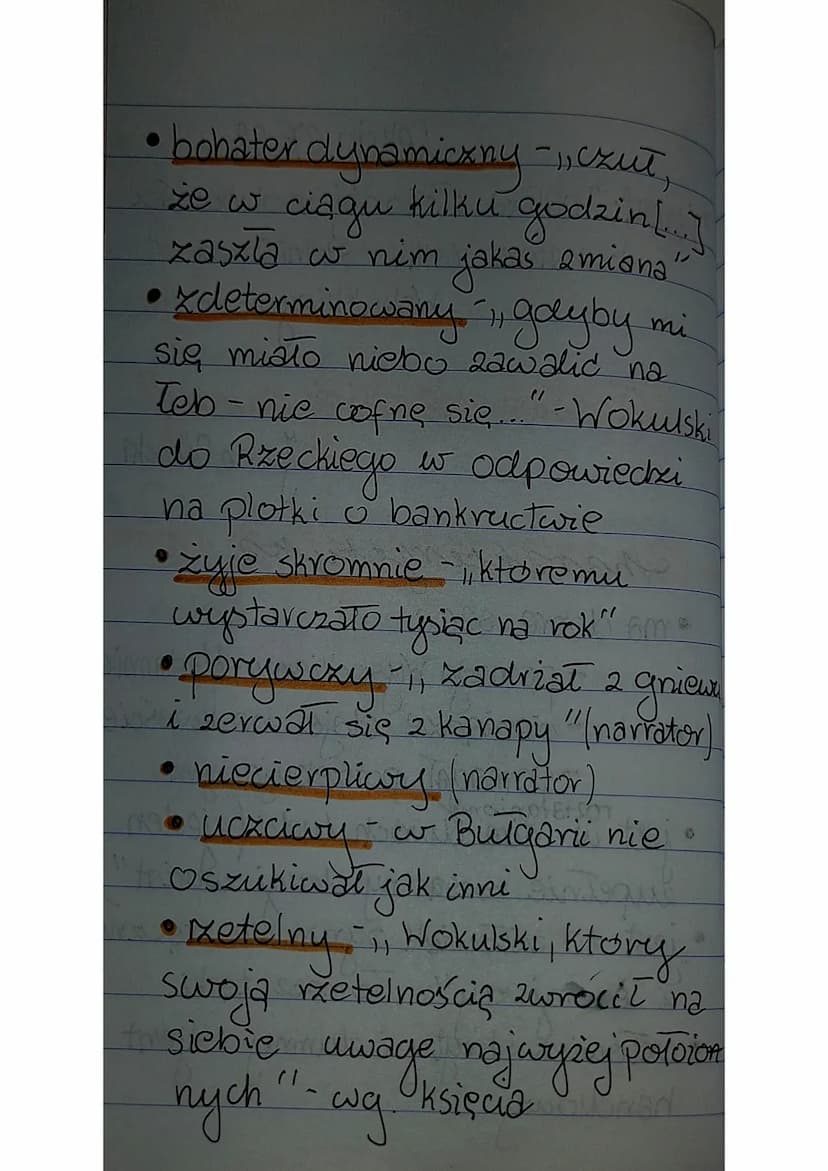 • bohater dynamiczny - „czuł,
że w ciągu kilku godzin [...]
zaszła w nim jakaś zmiana"
• zdeterminowany - „gdyby mi
się miało niebo zawalić na
łeb - nie cofnę się..." - Wokulski
do Rzeckiego w odpowiedzi
na plotki o bankructwie
• żyje skromnie - „któremu
wystarczało tysiąc na rok"
• porywczy - „zadrżał z gniewu
i zerwał się z kanapy" (narrator)
• niecierpliwy (narrator)
• uczciwy - w Bułgarii nie
oszukiwał jak inni
• rzetelny - „Wokulski, który
swoją rzetelnością zwrócił na
siebie uwagę najwyżej położon
nych" - wg. księcia